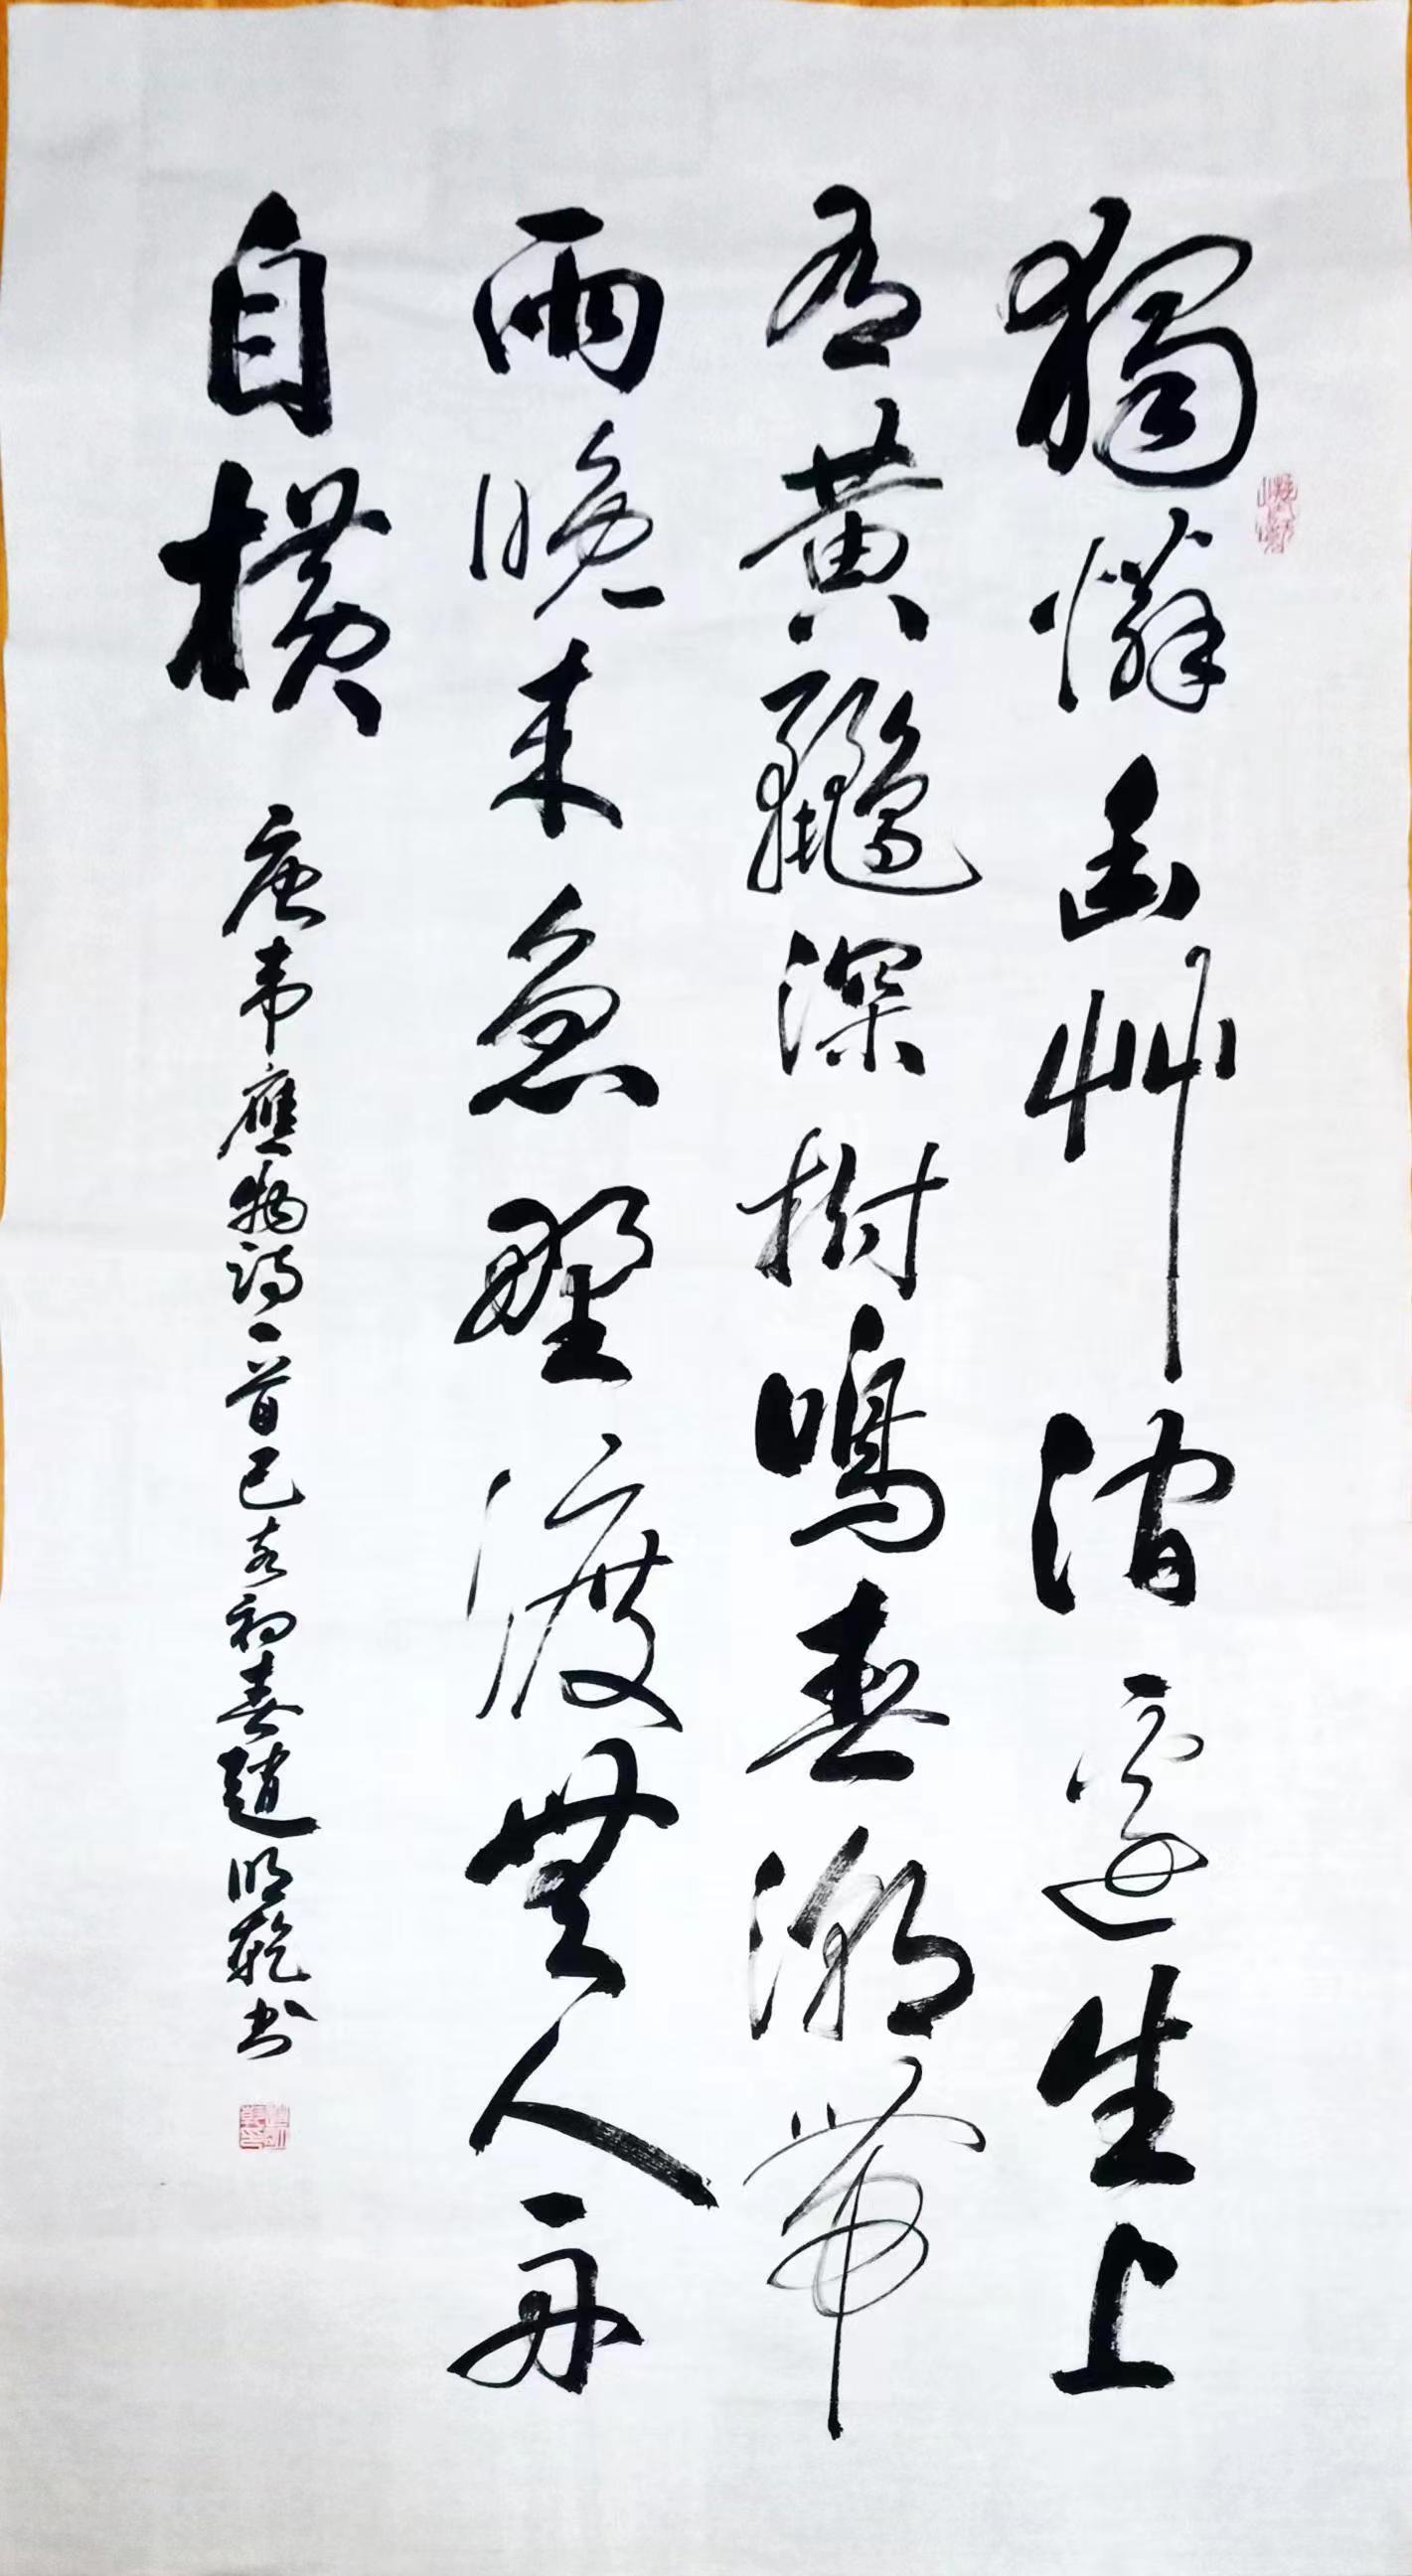 獨憐幽艸澗邊生上
有黃鸝深樹鳴春潮帶
雨晚来急野渡無人舟
自橫
唐韦應物詩一首己亥初春趙明乾书